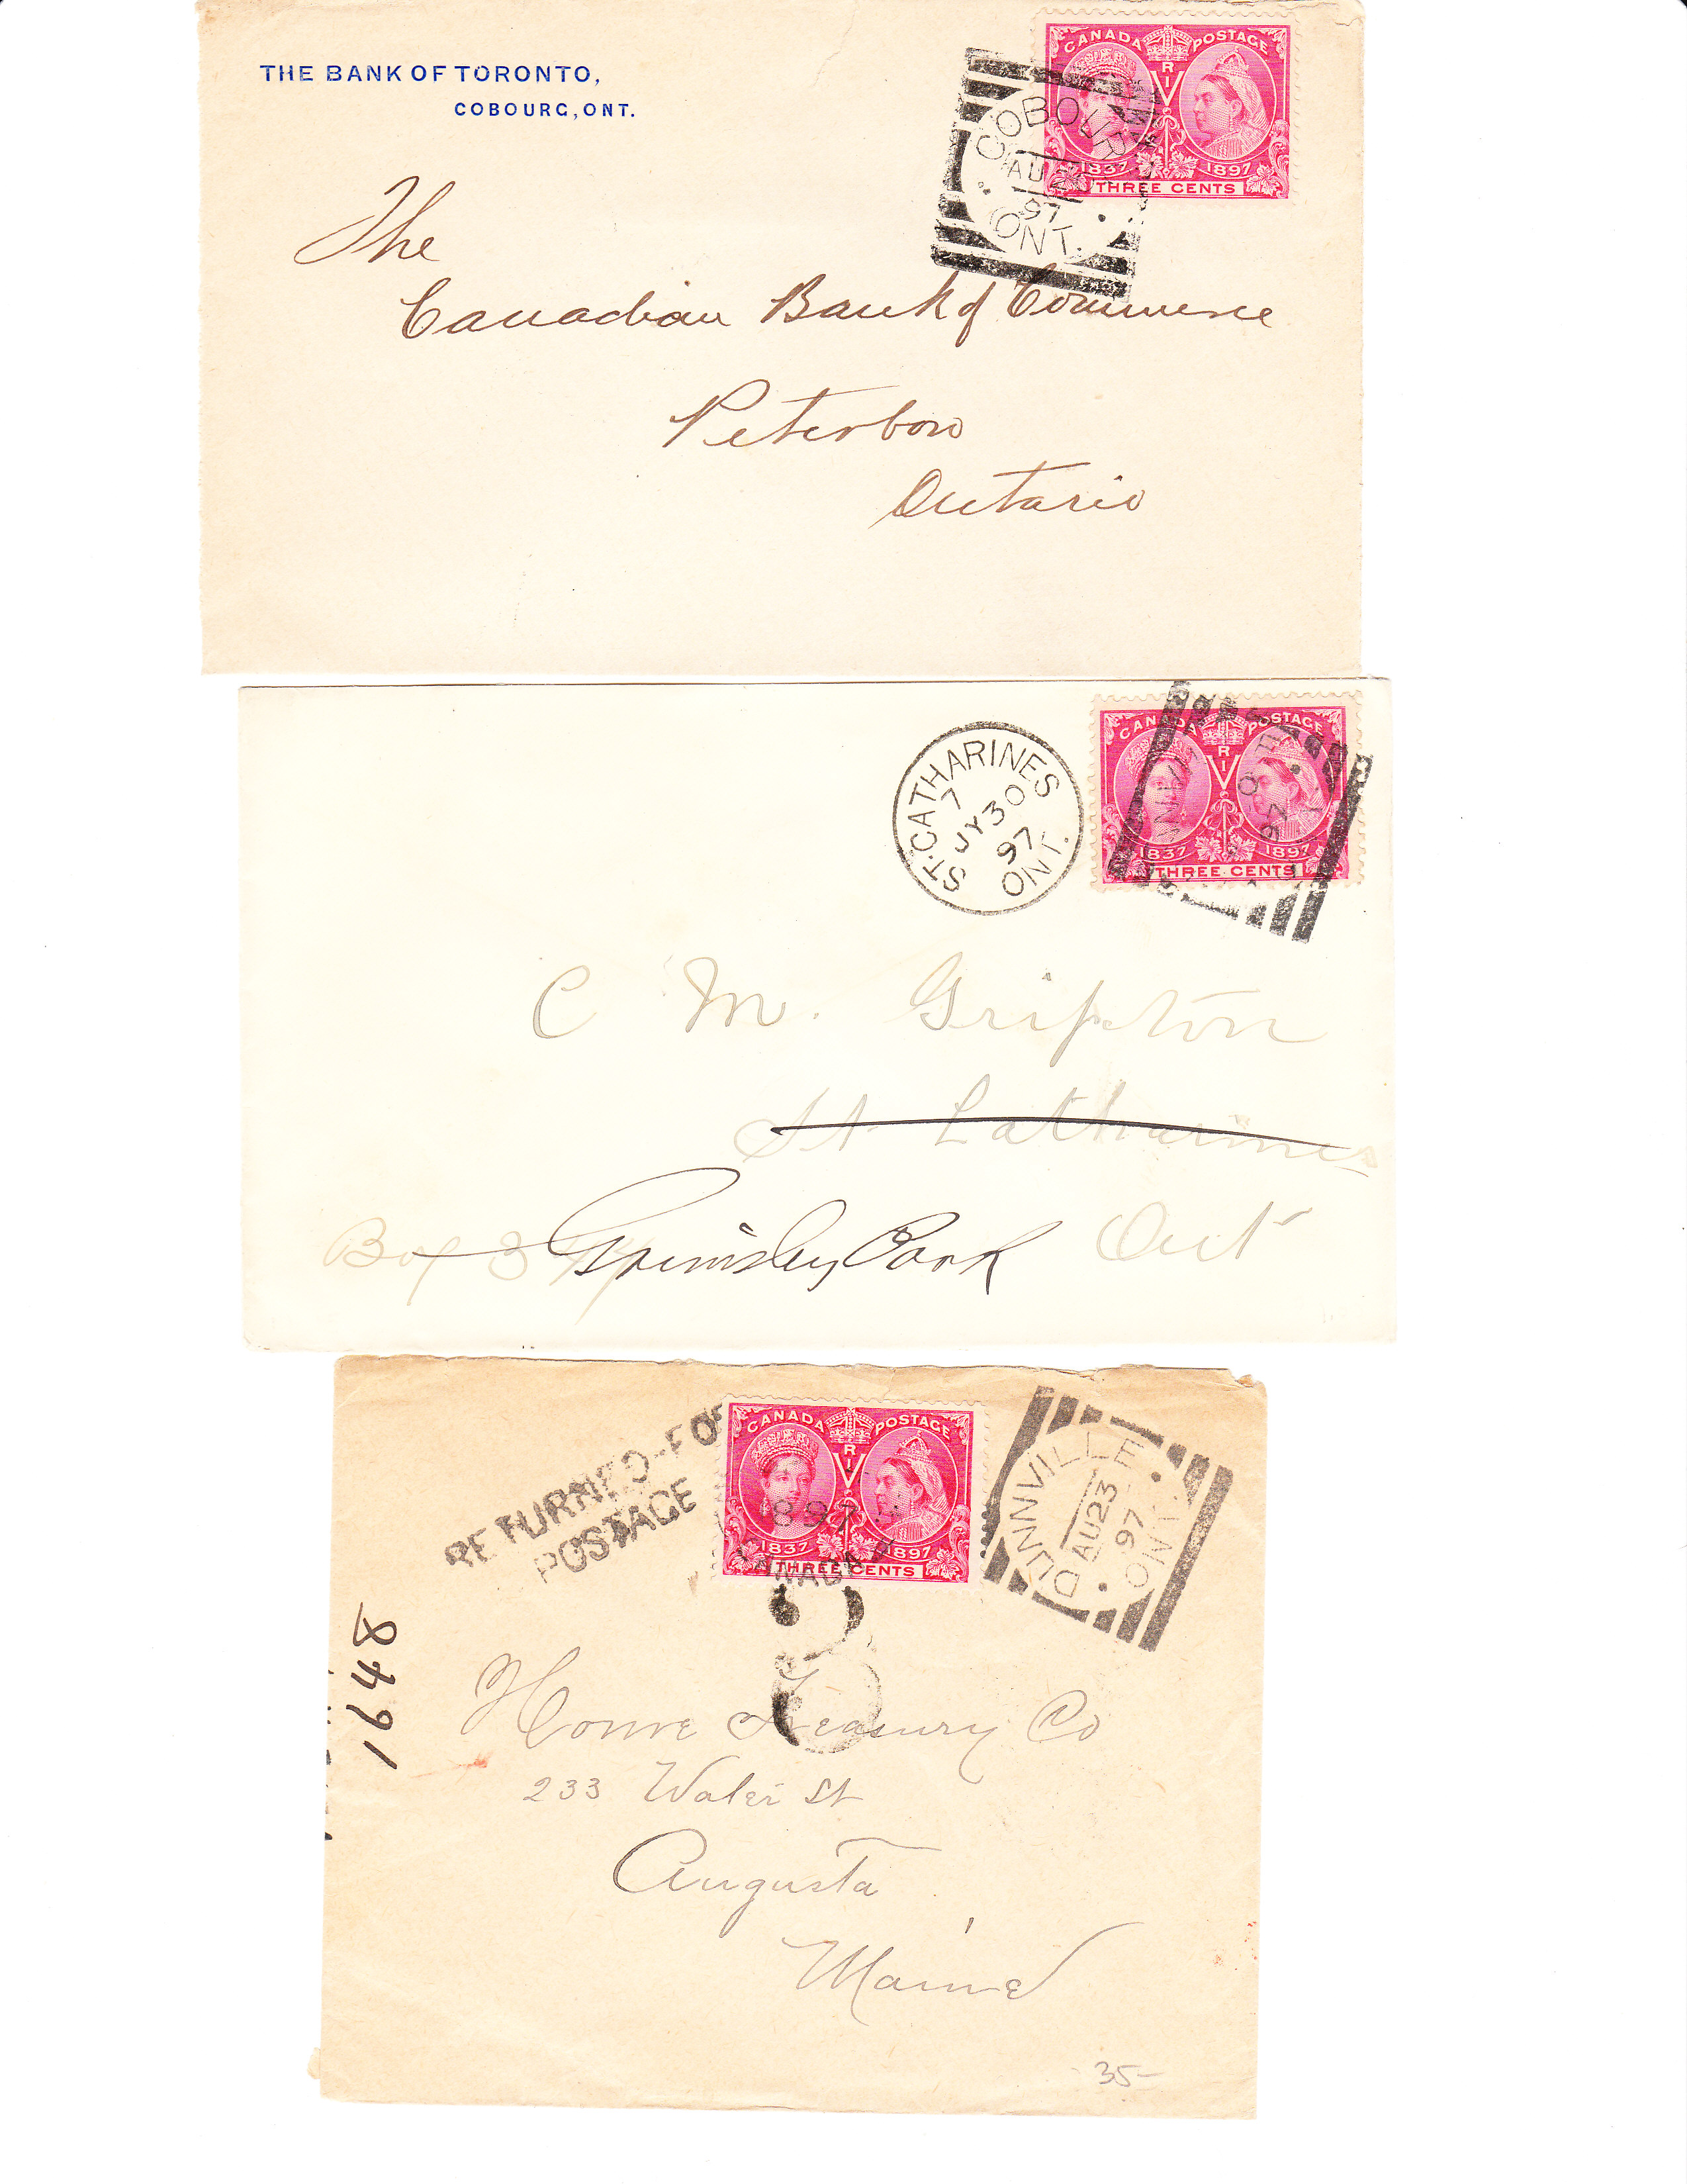 THE BANK OF TORONTO,
COBOURG, ONT.
CANADA POSTAGE
V R I
1837 1897
THREE CENTS
COBOUR
AU 2
97
ONT.
The
Canadian Bank of Commerce
Peterboro
Ontario
ST. CATHARINES
7
JY 30
97
ONT.
CANADA POSTAGE
V R I
1837 1897
THREE CENTS
97
C M. Gripton
St Catharines
Box 3 Grimsby Park Ont
RETURNED-FO
POSTAGE
CANADA POSTAGE
V R I
1837 1897
THREE CENTS
1897
3
DUNNVILLE
AU 23
97
ONT.
8491
Home Treasury Co
233 Water St
Augusta
Maine
35-